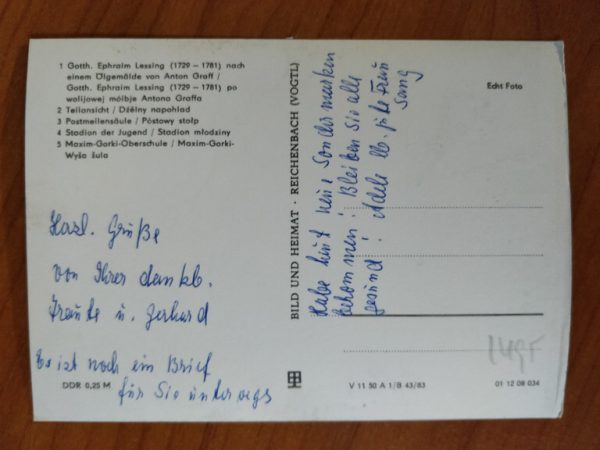 1 Gotth. Ephraim Lessing (1729 – 1781) nach
einem Ölgemälde von Anton Graff /
Gotth. Ephraim Lessing (1729 – 1781) po
wolijowej mólbje Antona Graffa
2 Teilansicht / Dźělny napohlad
3 Postmeilensäule / Póstowy stołp
4 Stadion der Jugend / Stadion młodziny
5 Maxim-Gorki-Oberschule / Maxim-Gorki-
Wyša šula
Herzl. Grüße
von Ihrer dankb.
Traute u. Gerhard
Es ist noch ein Brief
für Sie unterwegs
DDR 0,25 M
BILD UND HEIMAT · REICHENBACH (VOGTL)
Habe heut neue Sondermarken
bekommen! Bleiben Sie alle
gesund! Adele lb.
Echt Foto
V 11 50 A 1/B 43/83
01 12 08 034